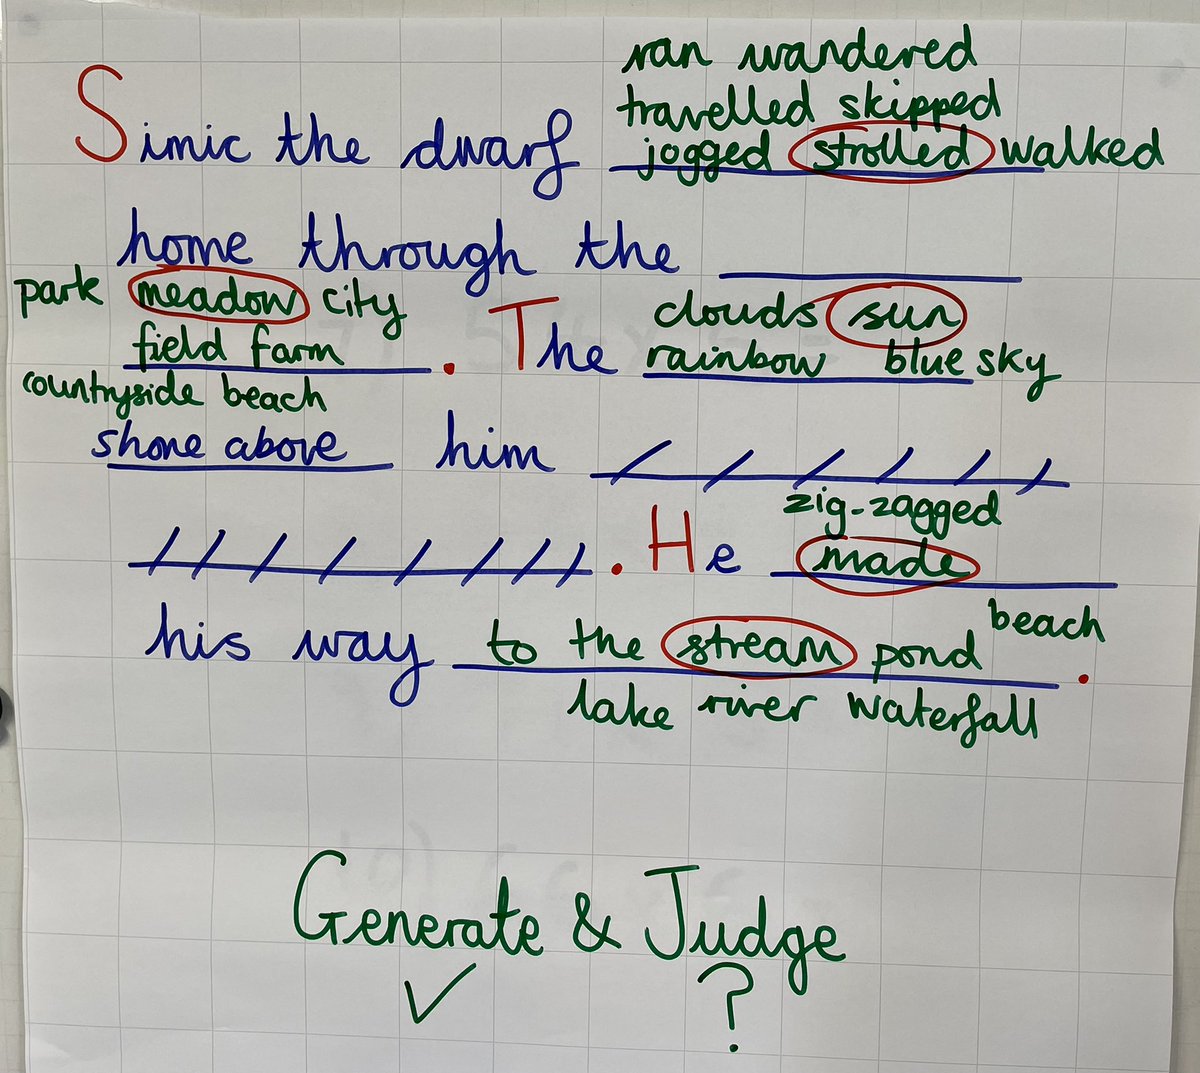 ran wandered
travelled skipped
Simic the dwarf jogged strolled walked
home through the
park meadow city
clouds sun
field farm . The rainbow blue sky
countryside beach
shone above him
zig-zagged
. He made
beach
his way to the stream pond .
lake river waterfall
Generate & Judge
✓ ?